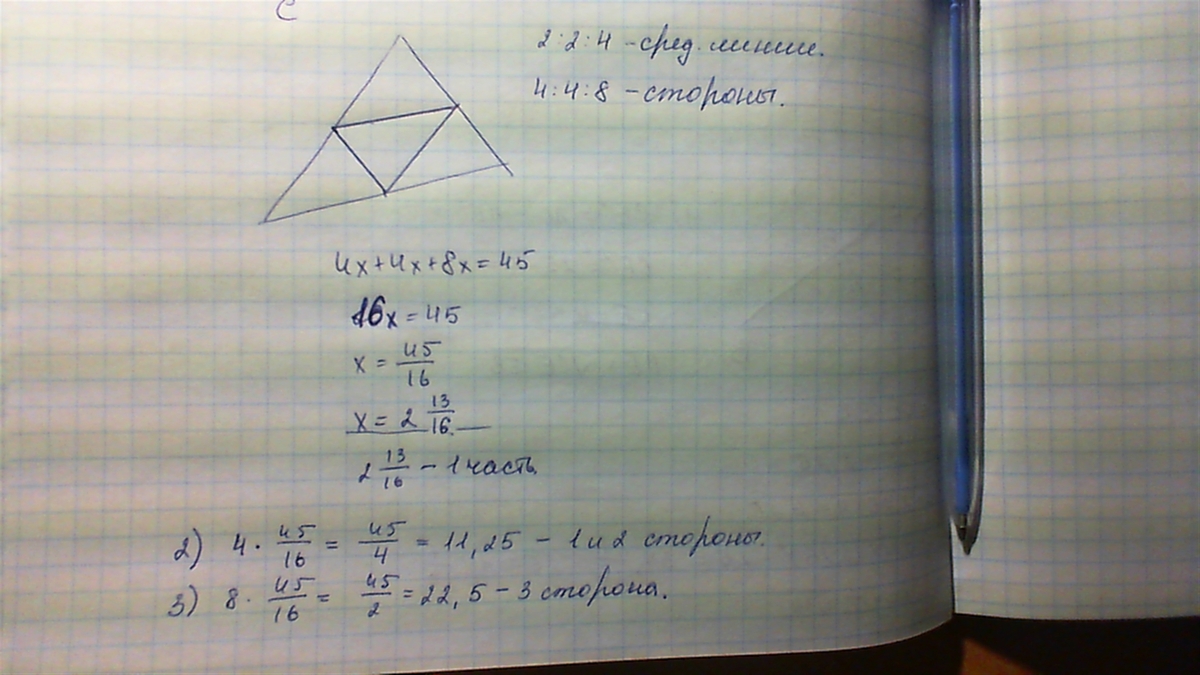 C
2:2:4 – сред. линии.
4:4:8 – стороны.
4x+4x+8x=45
16x=45
x = 45/16
x = 2 13/16
2 13/16 – 1 часть
2) 4 · 45/16 = 45/4 = 11,25 – 1 и 2 стороны.
3) 8 · 45/16 = 45/2 = 22,5 – 3 сторона.